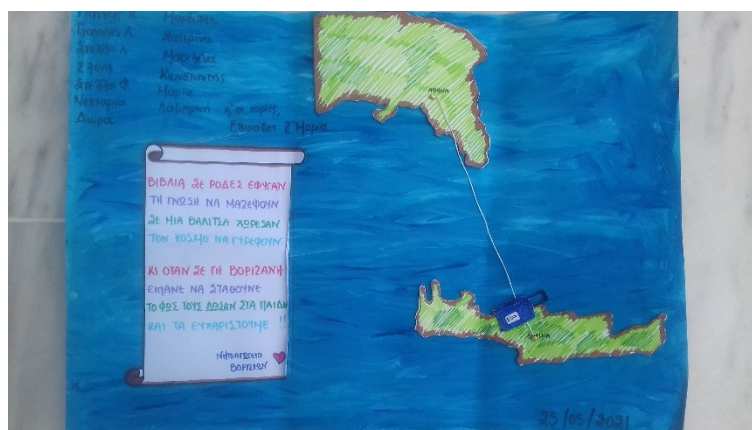 Γιάννης Κ. Μαρέλλα
Γιάννης Λ. Κατερίνα
Στέλλα Λ. Μαριλένα
Ελένη Κωνσταντής
Στέλλα Φ. Μαρία
Νεκταρία Λαμπρινή κ' οι κυρίες,
Δώρα Ελισάβετ & Μαρία
ΑΘΗΝΑ
ΒΙΒΛΙΑ ΣΕ ΡΟΔΕΣ ΕΦΥΓΑΝ
ΤΗ ΓΝΩΣΗ ΝΑ ΜΑΖΕΨΟΥΝ
ΣΕ ΜΙΑ ΒΑΛΙΤΣΑ ΧΩΡΕΣΑΝ
ΤΟΝ ΚΟΣΜΟ ΝΑ ΓΥΡΕΨΟΥΝ
ΚΙ ΟΤΑΝ ΣΕ ΓΗ ΒΟΡΙΖΑΝΗ
ΕΚΑΝΕ ΝΑ ΣΤΑΘΟΥΝΕ
ΤΟ ΦΩΣ ΤΟΥΣ ΔΩΣΑΝ ΣΤΑ ΠΑΙΔΙΑ
ΚΑΙ ΤΑ ΕΥΧΑΡΙΣΤΟΥΜΕ !!
ΝΗΠΙΑΓΩΓΕΙΟ
ΒΟΡΙΖΙΩΝ
25/05/2021